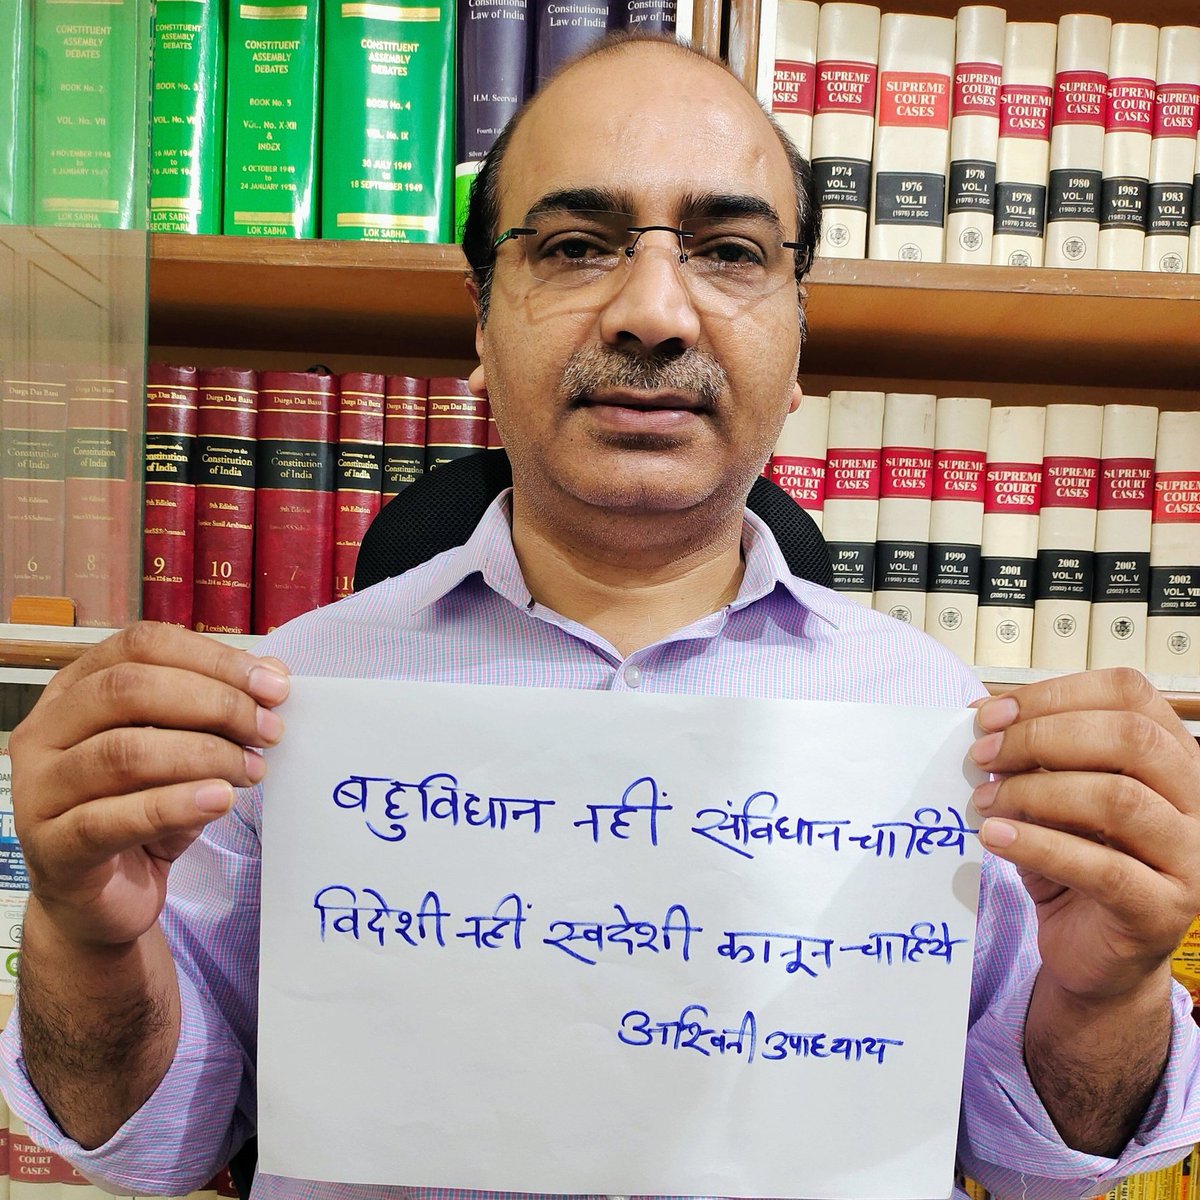 CONSTITUENT ASSEMBLY DEBATES
BOOK No. 2
VOL. No. VII
4 NOVEMBER 1948
to
8 JANUARY
CONSTITUENT ASSEMBLY DEBATES
BOOK No. 3
16 MAY 1949
to
16 JUNE
LOK SABHA
CONSTITUENT
ASSEMBLY
DEBATES
BOOK No. 5
VOL. No. X-XII
&
INDEX
6 OCTOBER 1949
to
24 JANUARY 1950
LOK SABHA
CONSTITUENT
ASSEMBLY
DEBATES
BOOK No. 4
VOL. No. IX
30 JULY 1949
to
18 SEPTEMBER 1949
LOK SABHA
Constitutional
Law of India
H.M. Seervai
Constitutional
Law of India
Constitutional
Law of India
SUPREME
COURT
CASES
1974
VOL. II
(1974) 2 SCC
SUPREME
COURT
CASES
1976
(1976) 2 SCC
SUPREME
COURT
CASES
1978
VOL. I
(1978) 1 SCC
SUPREME
COURT
CASES
1978
VOL. II
(1978) 2 SCC
SUPREME
COURT
CASES
1980
VOL. III
(1980) 3 SCC
SUPREME
COURT
CASES
1982
VOL. II
(1982) 2 SCC
SUPREME
COURT
CASES
1983
VOL. I
(1983) 1 SCC
Durga Das Basu
Constitution
of India
9th Edition
6
Durga Das Basu
Constitution
of India
9th Edition
8
Durga Das Basu
Constitution
of India
9th Edition
9
Durga Das Basu
Commentary on the
Constitution
of India
9th Edition
10
LexisNexis
Durga Das Basu
Commentary on the
Constitution
of India
9th Edition
7
Durga Das Basu
Constitution
of India
9th Edition
Durga Das Basu
Constitution
Durga Das Basu
Constitution
SUPREME
COURT
CASES
SUPREME
COURT
CASES
1997
VOL. VI
(1997) 6 SCC
SUPREME
COURT
CASES
1998
VOL. II
(1998) 2 SCC
SUPREME
COURT
CASES
1999
VOL. II
(1999) 2 SCC
SUPREME
COURT
CASES
2001
VOL. VII
(2001) 7 SCC
SUPREME
COURT
CASES
2002
VOL. IV
(2002) 4 SCC
SUPREME
COURT
CASES
2002
VOL. V
(2002) 5 SCC
SUPREME
COURT
CASES
2002
(2002) 8 SCC
बहुविधान नहीं संविधान चाहिये
विदेशी नहीं स्वदेशी कानून चाहिये
अश्विनी उपाध्याय